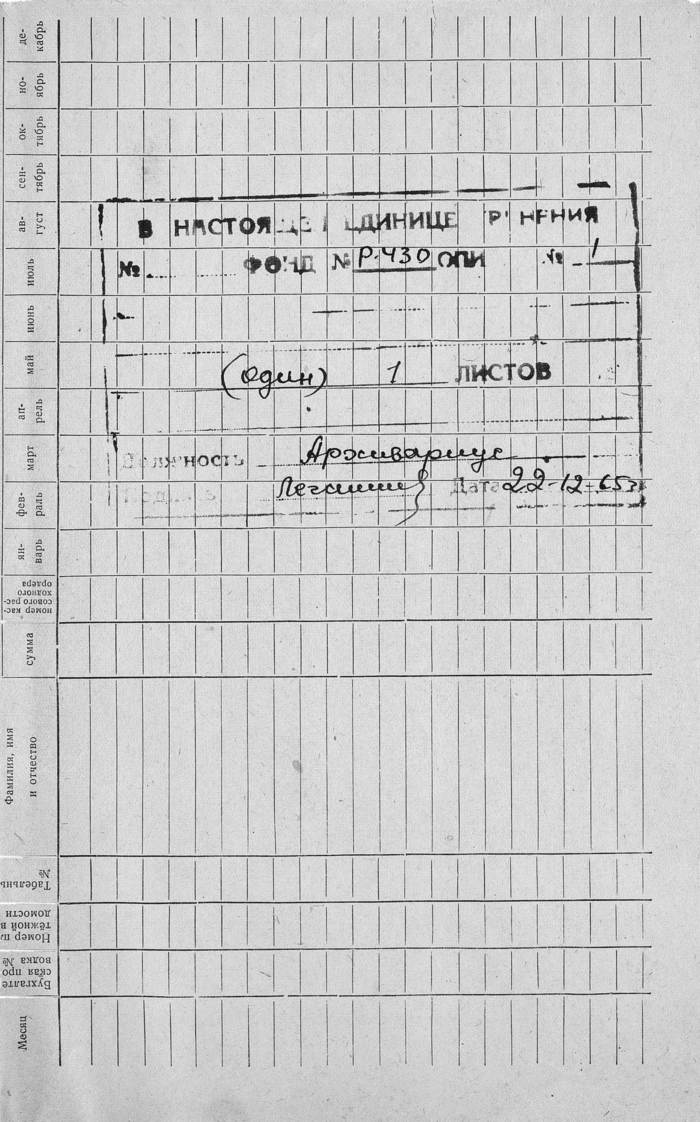 де-
кабрь
но-
ябрь
ок-
тябрь
сен-
тябрь
ав-
густ
июль
июнь
май
ап-
рель
март
фев-
раль
ян-
варь
номер кас-
сового рас-
ходного
ордера
сумма
Фамилия, имя
и отчество
Табельны
№
Номер пл
тёжной в
домости
Бухгалте
ская про
водка №
Месяц
В НАСТОЯЩЕ ЕДИНИЦЕ
№ ФОНД № Р-430 ОПИ № 1
(один) 1 ЛИСТОВ
Должность Архивариус
Дата 22-12-65г